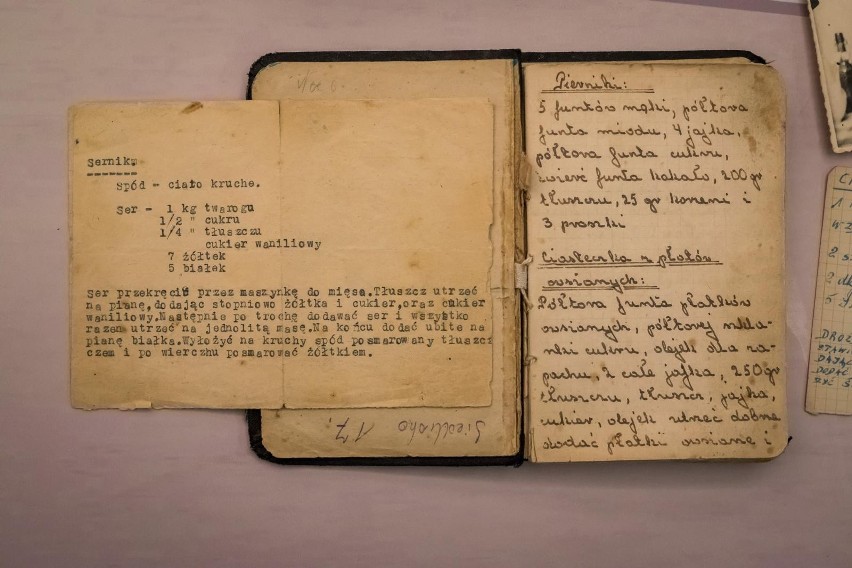 Sernik.
Spód - ciało kruche.
Ser - 1 kg twarogu
1/2 " cukru
1/4 " tłuszczu
cukier waniliowy
7 żółtek
5 białek
Ser przekręcić przez maszynkę do mięsa.Tłuszcz utrzeć
na pianę,dodając stopniowo żółtka i cukier,oraz cukier
waniliowy.Następnie po trochę dodawać ser i wszystko
razem utrzeć na jednolitą masę.Na końcu dodać ubite na
pianę białka.Wyłożyć na kruchy spód posmarowany tłuszcz
czem i po wierzchu posmarować żółtkiem.
Siedlisko
17.
Pierniki:
5 funtów mąki, półtova
funta miodu, 4 jajka,
półtova funta cukru,
ćwierć funta kakało, 200 gr
tłuszczu, 25 gr korzeni i
3 proszki
Ciasteczka z płatów
owsianych:
Półtova funta płatków
owsianych, półtorej szkla-
nki cukru, olejek dla za-
pachu, 2 całe jajka, 250 gr
tłuszczu, tłuszcz, jajka,
cukier, olejek utrzeć dobrze
dodać płatki owsiane i